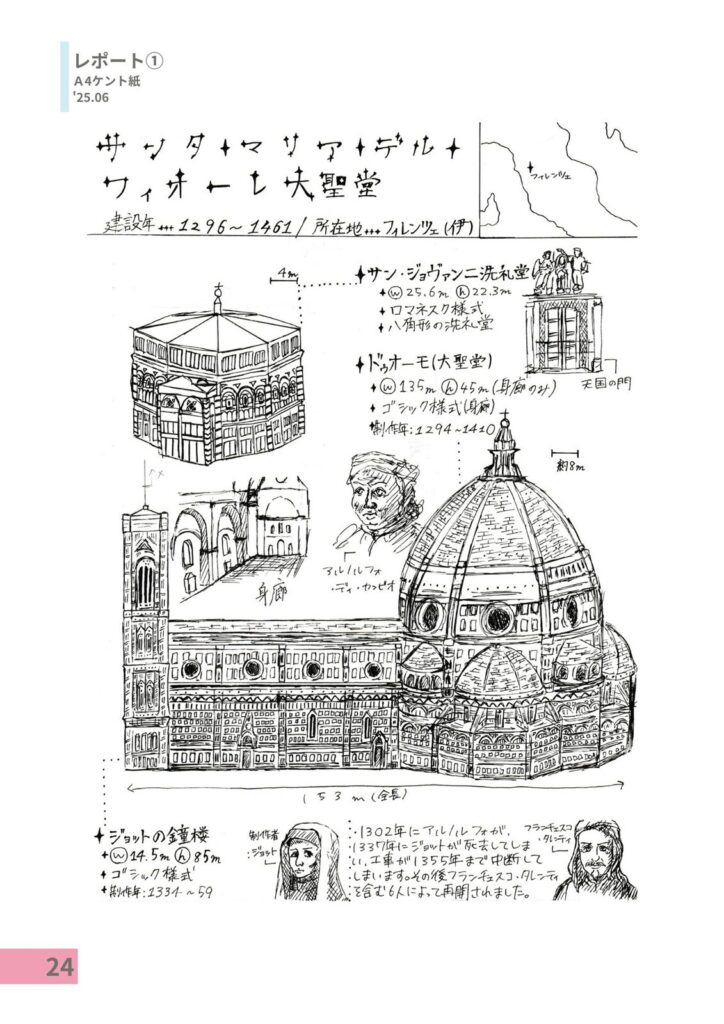 レポート①
A4ケント紙
'25.06
サンタ・マリア・デル・
フィオーレ大聖堂
建設年…1296～1461/所在地…フィレンツェ(伊)
フィレンツェ
4m
サン・ジョヴァンニ洗礼堂
ⓦ25.6m ⓗ22.3m
ロマネスク様式
八角形の洗礼堂
天国の門
ドゥオーモ(大聖堂)
ⓦ135m ⓗ45m(身廊のみ)
ゴシック様式(身廊)
制作年:1294~1410
約8m
アルノルフォ
・ディ・カンビオ
身廊
153m(全長)
ジョットの鐘楼
ⓦ14.5m ⓗ85m
ゴシック様式
制作年:1334～59
制作者
ジョット
・1302年にアルノルフォが、
1337年にジョットが死去してしま
い、工事が1355年まで中断して
しまいます。その後フランチェスコ・タレンティ
を含む6人によって再開されました。
フランチェスコ
・タレンティ
24